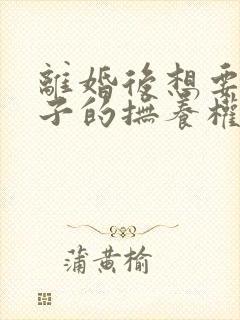 離婚後想要
子的撫養權
蒲黃榆